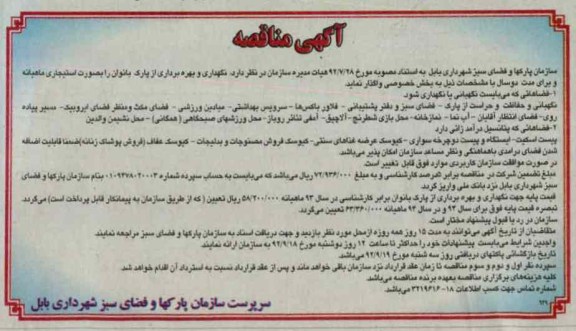 آگهی مناقصه
سازمان پارکها و فضای سبز شهرداری بابل به استناد مصوبه مورخ ۹۲/۷/۲۸ هیات مدیره سازمان در نظر دارد، نگهداری و بهره برداری از پارک بانوان را بصورت استیجاری ماهیانه
و برای مدت دوسال با مشخصات ذیل به بخش خصوصی واگذار نماید.
۱-فضاهائی که می‌بایست نگهبانی یا نگهداری شود.
نگهبانی و حفاظت و حراست از پارک - فضای سبز و دفتر پشتیبانی - فلاور باکس‌ها - سرویس بهداشتی- میادین ورزشی - فضای مکث ومنظر فضای ایروبیک- مسیر پیاده
روی- فضای انتظار آقایان - آب نما - نمازخانه- محل بازی شطرنج -آلاچیق- آمفی تئاتر روباز- محل ورزشهای صبحگاهی (همگانی) - محل نشیمن والدین
۲-فضاهائی که پتانسیل درآمد زائی دارد
پیست اسکیت- ایستگاه و پیست دوچرخه سواری - کیوسک عرضه غذاهای سنتی- کیوسک فروش مصنوعات و بدلیجات - کیوسک عفاف (فروش پوشاک زنانه)ضمنا قابلیت اضافه
شدن فضای درآمدی باهماهنگی ونظر مساعد سازمان امکان پذیر می‌باشد.
در صورت موافقت سازمان کاربردی موارد فوق قابل تغییر است.
مبلغ تضمین شرکت در مناقصه برابر ۵درصد کارشناسی و به مبلغ ۷۲/۹۳۶/۰۰۰ ریال می‌باشد که می‌بایست به حساب سپرده شماره بنام سازمان پارکها و فضای
سبز شهرداری بابل نزد بانک ملی واریز گردد.
قیمت پایه جهت نگهداری و بهره برداری از پارک بانوان برابر کارشناسی در سال ۹۳ ماهیانه ۵۸/۲۰۰/۰۰۰ ریال تعیین (که از طریق سازمان به پیمانکار قابل پرداخت است) می‌گردد.
تبصره قیمت پایه فوق برای سال ۹۳ و در سال ۹۴ ماهیانه ۶۳/۳۶۰/۰۰۰ تعیین می‌گردد.
سازمان در رد یا قبول پیشنهاد مختار است.
متقاضیان از تاریخ آگهی می‌توانند به مدت ۱۵ روز همه روزه ازمحل مورد نظر بازدید و جهت دریافت اسناد به سازمان پارکها و فضای سبز مراجعه نمایند.
واجدین شرایط می‌بایست پیشنهادات خود را حداکثر تا ساعت ۱۴ روز دوشنبه مورخ ۹۲/۹/۱۸ به سازمان ارائه نمایند.
تاریخ بازگشائی پاکتهای دریافتی روز سه شنبه مورخ ۹۲/۹/۱۹ می‌باشد.
سپرده نفر اول و دوم و سوم مناقصه تا زمان عقد قرارداد نزد سازمان باقی خواهد ماند و پس از عقد قرارداد نسبت به استرداد آن اقدام خواهد شد.
کلیه هزینه‌های برگزاری مناقصه بعهده برنده مناقصه می‌باشد.
شماره تماس جهت کسب اطلاعات ۱۸-۳۲۱۹۶۱۶ می‌باشد.
سرپرست سازمان پارکها و فضای سبز شهرداری بابل